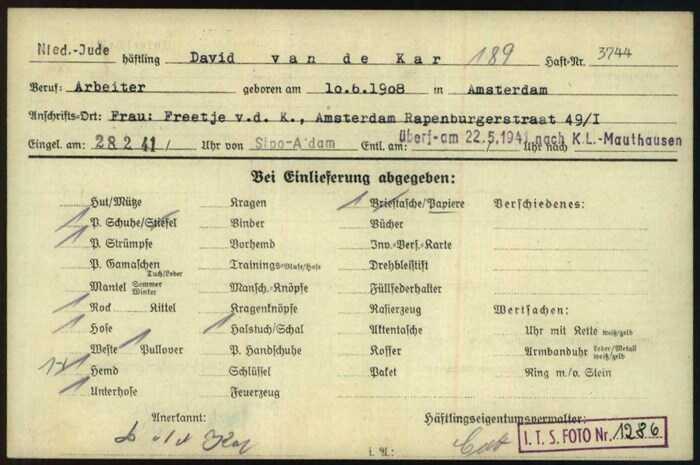 Nied.-Jude häftling David van de Kar 189 Haft-Nr. 3744
Beruf: Arbeiter geboren am 10.6.1908 in Amsterdam
Anschrifts-Ort: Frau: Freetje v.d. K., Amsterdam Rapenburgerstraat 49/I
Eingel. am: 28 2 41 / Uhr von Sipo-A'dam Entl. am: überf. am 22.5.1941 / Uhr nach K.L.-Mauthausen
Bei Einlieferung abgegeben:
Hut/Mütze Kragen 1 Brieftasche/Papiere Verschiedenes:
1 P. Schuhe/Stiefel Binder Bücher
1 P. Strümpfe Vorhemd Inv.-Vers.-Karte
P. Gamaschen Tuch/Leder Trainings-Bluse/Hose Drehbleistift
Mantel Sommer Winter Mansch.-Knöpfe Füllfederhalter
1 Rock Kittel Kragenknöpfe Rasierzeug Wertsachen:
1 Hose 1 Halstuch/Schal Aktentasche Uhr mit Kette weiß/gelb
Weste 1 Pullover P. Handschuhe Koffer Armbanduhr Leder/Metall weiß/gelb
1+1 Hemd Schlüssel Paket Ring m./o. Stein
1 Unterhose Feuerzeug
Anerkannt: Häftlingseigentumsverwalter:
d v d Kar i. A.: I. T. S. FOTO Nr. 1286